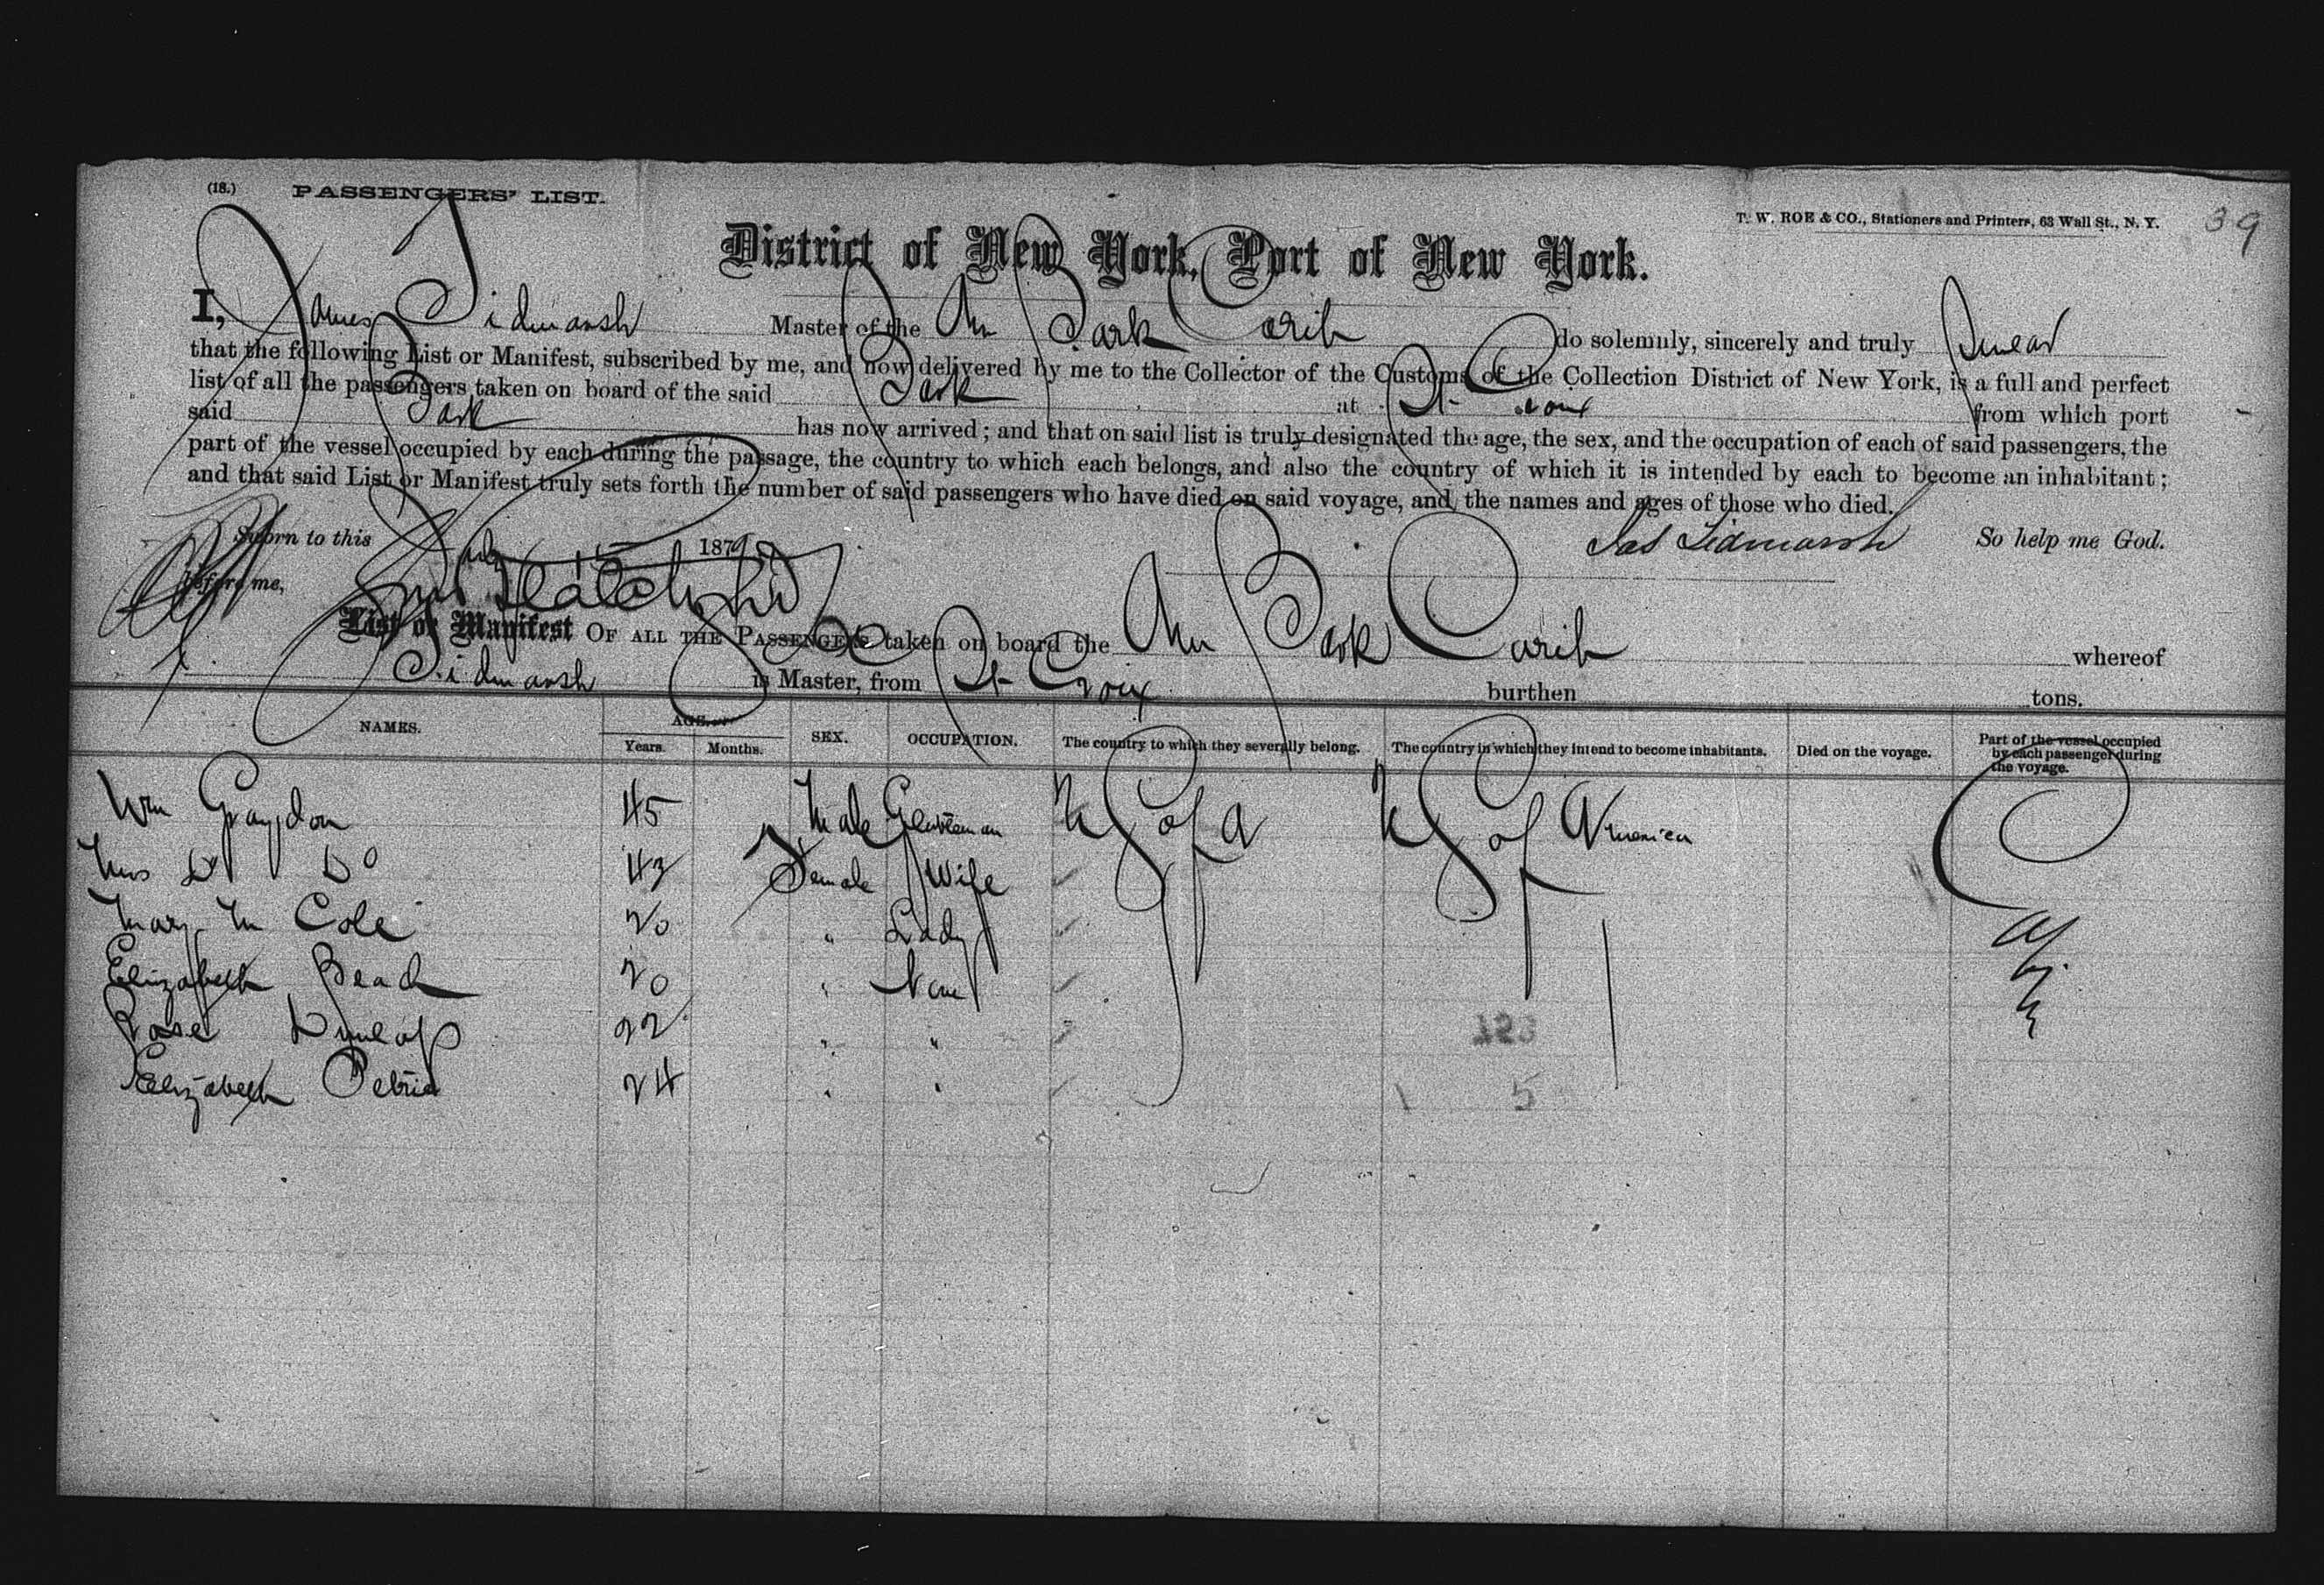 (18.) PASSENGERS' LIST.
T. W. ROE & CO., Stationers and Printers, 63 Wall St., N. Y. 39
District of New York, Port of New York.
I, James Tidmarsh Master of the Am Bark Carib do solemnly, sincerely and truly Swear
that the following List or Manifest, subscribed by me, and now delivered by me to the Collector of the Customs of the Collection District of New York, is a full and perfect
list of all the passengers taken on board of the said Bark at St Croix from which port
said Bark has now arrived; and that on said list is truly designated the age, the sex, and the occupation of each of said passengers, the
part of the vessel occupied by each during the passage, the country to which each belongs, and also the country of which it is intended by each to become an inhabitant;
and that said List or Manifest truly sets forth the number of said passengers who have died on said voyage, and the names and ages of those who died.
Sworn to this 187 Jas Tidmarsh So help me God.
Before me,
List or Manifest OF ALL THE PASSENGERS taken on board the Am Bark Carib whereof
Tidmarsh is Master, from St Croix burthen tons.
NAMES. AGE. SEX. OCCUPATION. The country to which they severally belong. The country in which they intend to become inhabitants. Died on the voyage. Part of the vessel occupied by each passenger during the voyage.
Years. Months.
Wm Graydon 45 Male Gentleman U S of A U S of America
Mrs Do Do 43 Female Wife
Mary M Cole 20 " Lady
Elizabeth Beach 20 " None
Rose Dunlop 22 " "
Elizabeth Petrie 24 " "
5